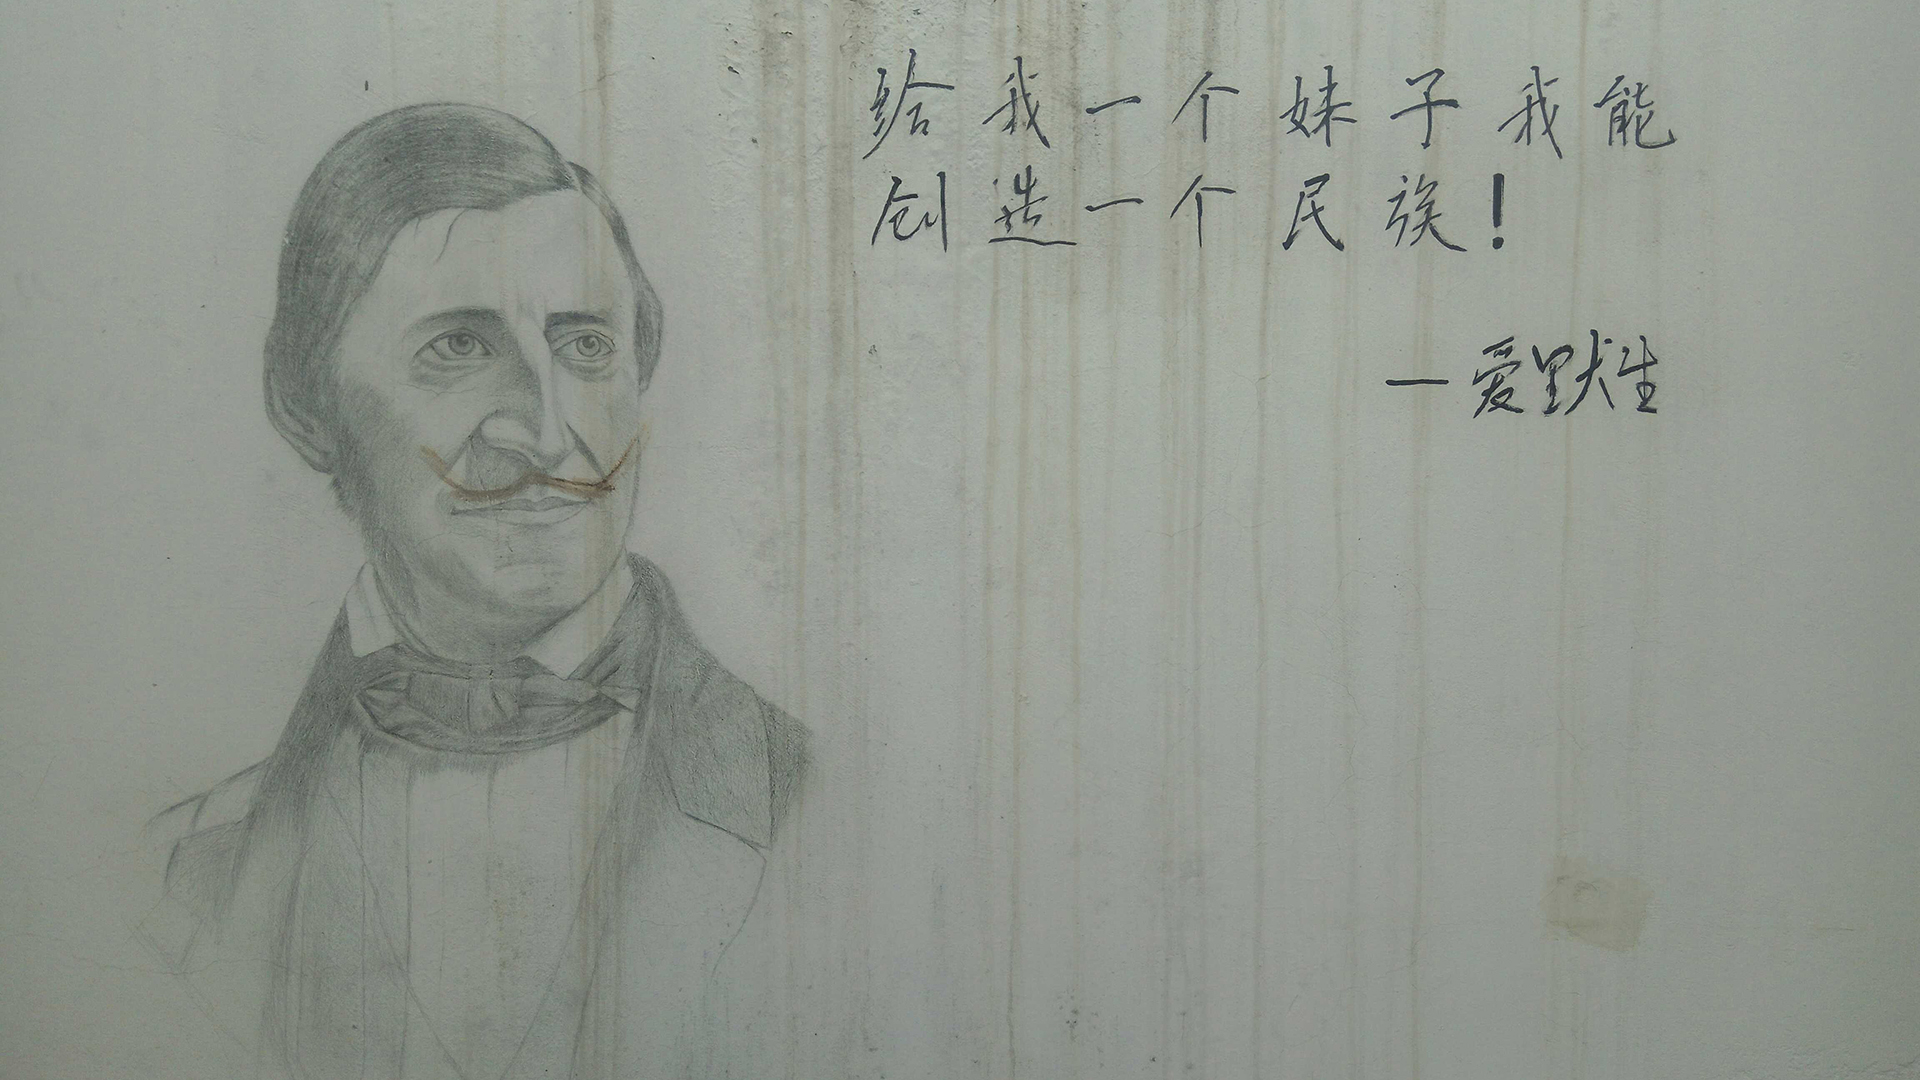 给我一个妹子我能
创造一个民族!
—爱默生